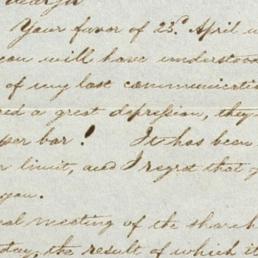 Dear Sir
Your favor of 23d. April w
you will have understood
of my last communicatio
ed a great depression, they
per bar! It has been
r limit, and I regret that y
you.
al meeting of the shareh
day, the result of which it